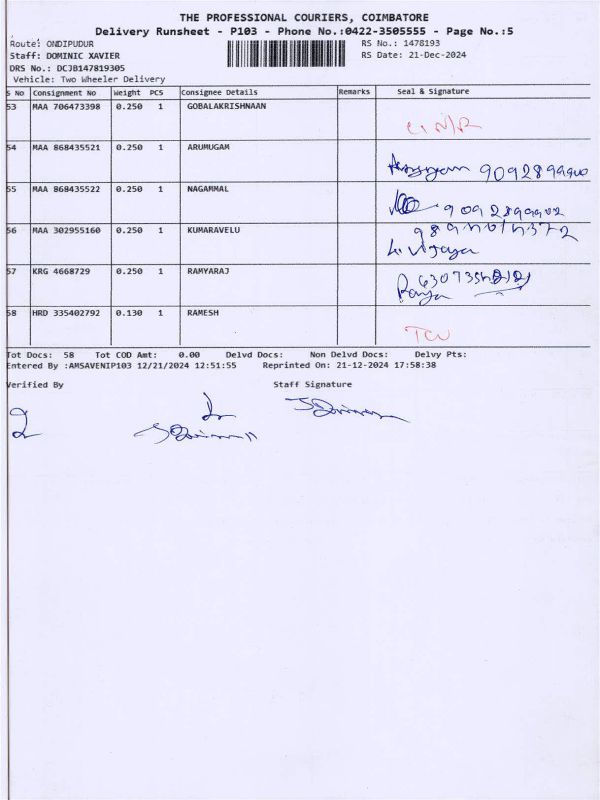 THE PROFESSIONAL COURIERS, COIMBATORE
Delivery Runsheet - P103 - Phone No.:0422-3505555 - Page No.:5
Route: ONDIPUDUR RS No.: 1478193
Staff: DOMINIC XAVIER RS Date: 21-Dec-2024
DRS No.: DCJB147819305
Vehicle: Two Wheeler Delivery
S No Consignment No Weight PCS Consignee Details Remarks Seal & Signature
53 MAA 706473398 0.250 1 GOBALAKRISHNAAN
54 MAA 868435521 0.250 1 ARUMUGAM
9092899900
55 MAA 868435522 0.250 1 NAGAMMAL
9092899902
56 MAA 302955160 0.250 1 KUMARAVELU
57 KRG 4668729 0.250 1 RAMYARAJ
58 HRD 335402792 0.130 1 RAMESH
Tot Docs: 58 Tot COD Amt: 0.00 Delvd Docs: Non Delvd Docs: Delvy Pts:
Entered By :AMSAVENIP103 12/21/2024 12:51:55 Reprinted On: 21-12-2024 17:58:38
Verified By Staff Signature